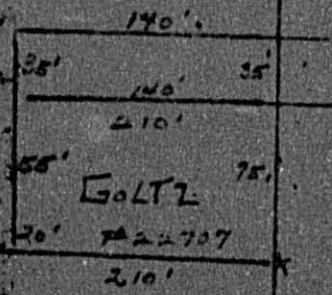 140'.
35' 35'
140'
210'
55' 75'
GOLTZ
20' #22707
210'